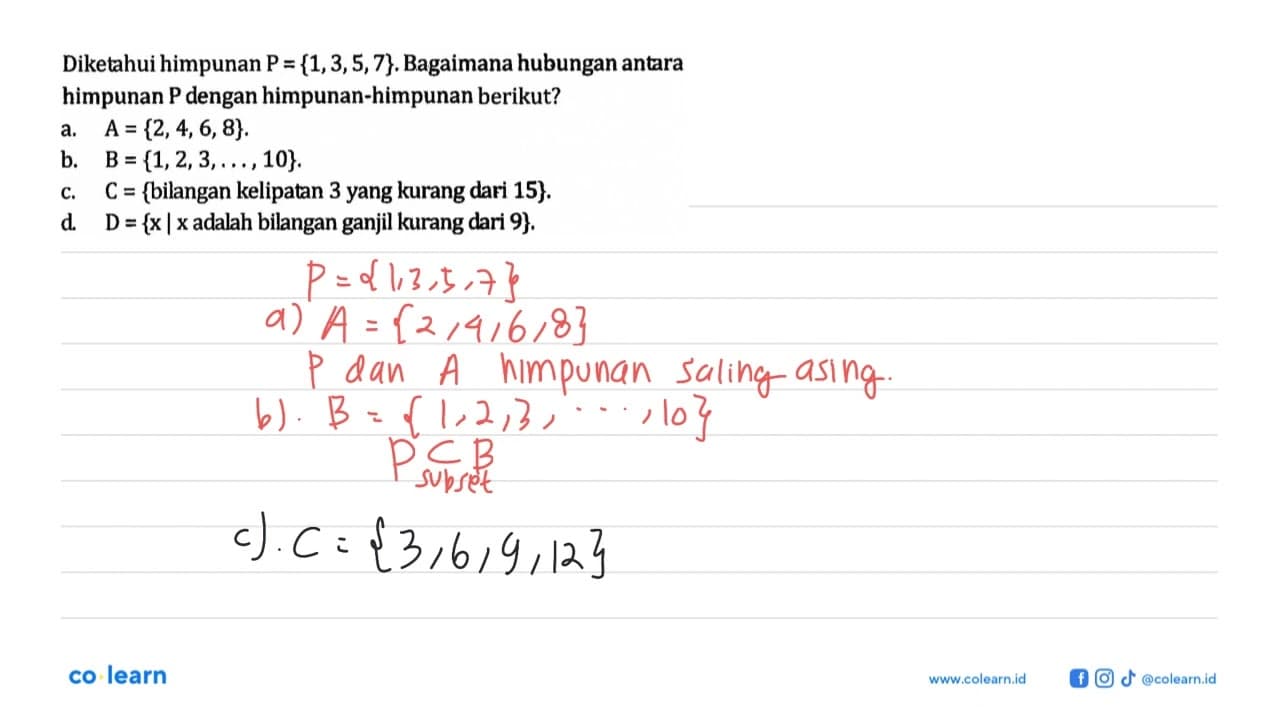 Diketahui himpunan P = {1, 3, 5, 7}. Bagaimana hubungan antara
himpunan P dengan himpunan-himpunan berikut?
a. A = {2, 4, 6, 8}.
b. B = {1, 2, 3, . . . , 10}.
c. C = {bilangan kelipatan 3 yang kurang dari 15}.
d. D = {x | x adalah bilangan ganjil kurang dari 9}.
P = {1,3,5,7}
a) A = {2,4,6,8}
P dan A himpunan saling asing.
b). B = {1,2,3, ....,10}
P ⊂ B
subset
c). C = {3,6,9,12}
co learn
www.colearn.id
@colearn.id